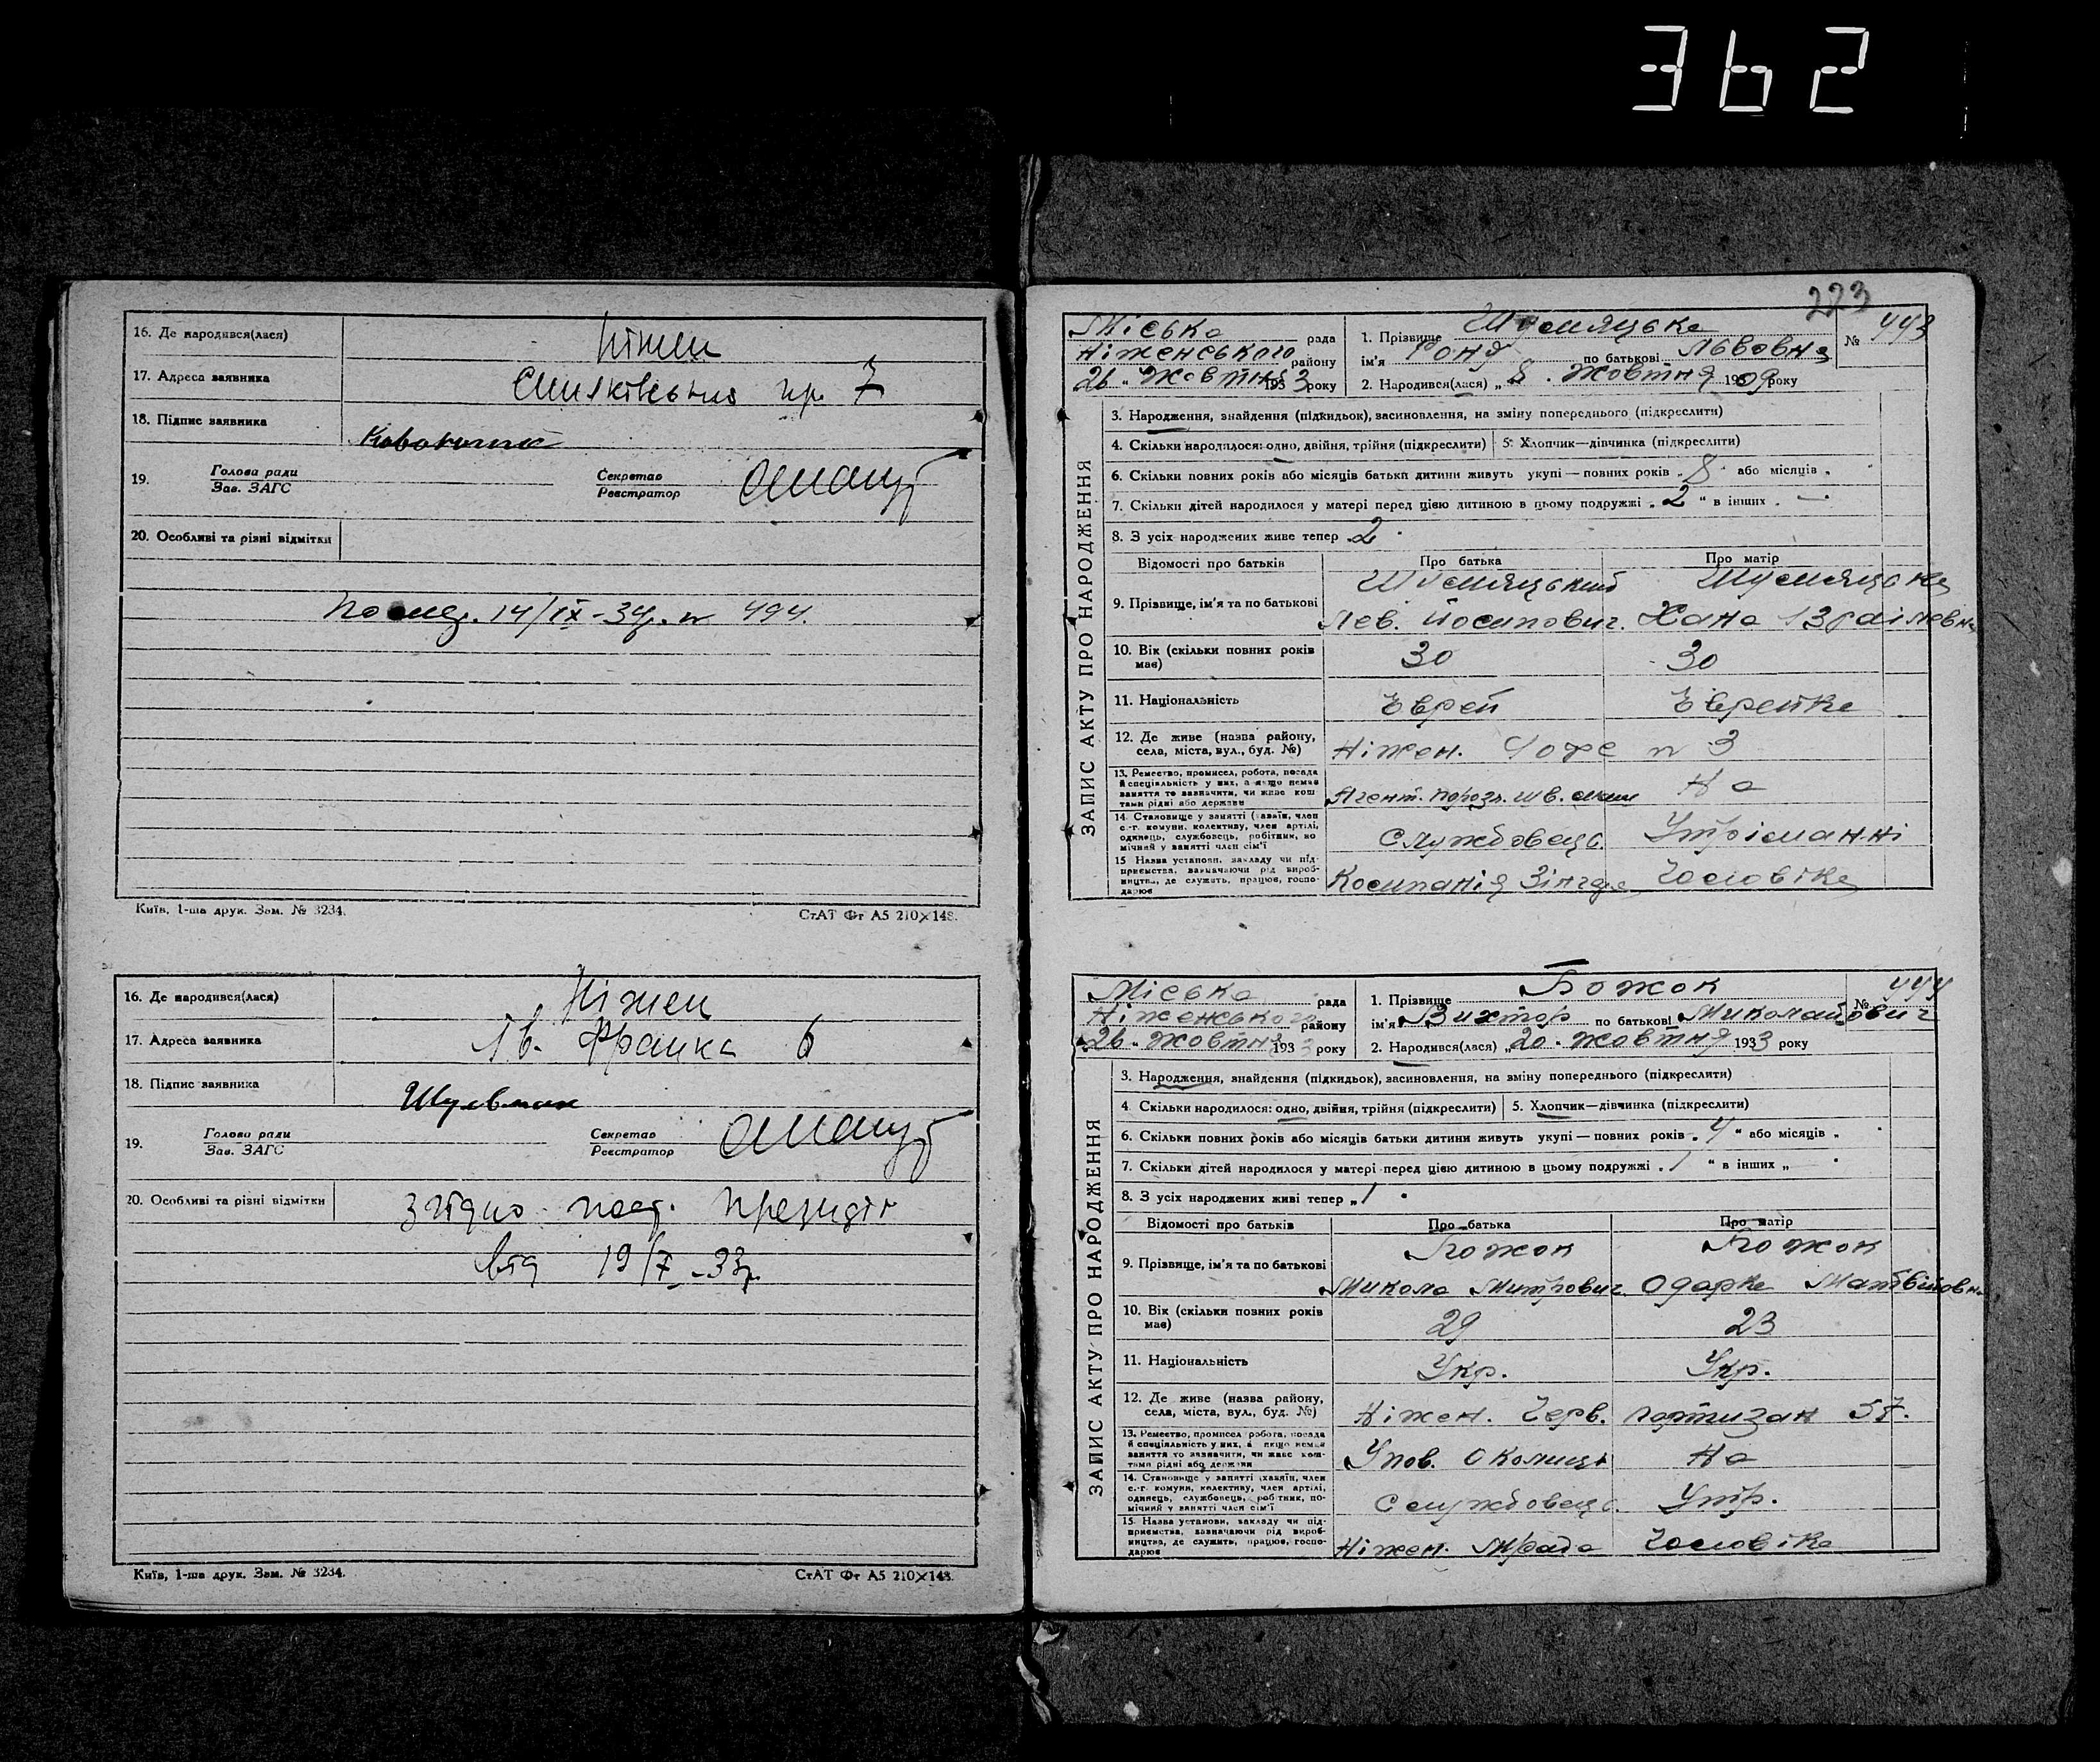 362
16. Де народився(лася) Ніжен
17. Адреса заявника пр. 7
18. Підпис заявника
19. Голова ради Зав. ЗАГС Секретар Реєстратор
20. Особливі та різні відмітки
14/ІХ-34р. № 494.
Київ, 1-ша друк. Зам. № 3234. СтАТ Фт А5 210×148.
16. Де народився(лася) Ніжен
17. Адреса заявника Ів. Франка 6
18. Підпис заявника Шульман
19. Голова ради Зав. ЗАГС Секретар Реєстратор
20. Особливі та різні відмітки згідно пост. президії
від 19/Х-33р.
Київ, 1-ша друк. Зам. № 3234. СтАТ Фт А5 210×148.
223
Міська рада
Ніженського району
26 " Жовтня 1933 року
1. Прізвище Шумяцька № 443
ім'я Роня по батькові Львовна
2. Народився(лася) " 8 " жовтня 1909 року
ЗАПИС АКТУ ПРО НАРОДЖЕННЯ
3. Народження, знайдення (підкидьок), засиновлення, на зміну попереднього (підкреслити)
4. Скільки народилося: одно, двійня, трійня (підкреслити) 5. Хлопчик—дівчинка (підкреслити)
6. Скільки повних років або місяців батьки дитини живуть укупі—повних років " 8 " або місяців "
7. Скільки дітей народилося у матері перед цією дитиною в цьому подружжі " 2 " в інших " —
8. З усіх народжених живе тепер 2
Відомості про батьків Про батька Про матір
9. Прізвище, ім'я та по батькові Шумяцький Лев. Йосипович. Шумяцька Хана Ізраілевна
10. Вік (скільки повних років має) 30 30
11. Національність Єврей Єврейка
12. Де живе (назва району, села, міста, вул., буд. №) Ніжен. № 3
13. Ремество, промисел, робота, посада й спеціяльність у них, а якщо немає заняття то зазначити, чи живе коштами рідні або держави Агент. шв. маш На
14. Становище у занятті (хазяїн, член с.-г. комуни, колективу, член артілі, одинець, службовець, робітник, помічний у занятті член сім'ї Службовець. Утріманні
15. Назва установи, закладу чи підприємства, зазначаючи рід виробництва, де служить, працює, господарює Компанія Зінгера Чоловіка
Міська рада
Ніженського району
26 " Жовтня 1933 року
1. Прізвище Божок № 444
ім'я Вихтор по батькові Миколайович
2. Народився(лася) " 20 " жовтня 1933 року
ЗАПИС АКТУ ПРО НАРОДЖЕННЯ
3. Народження, знайдення (підкидьок), засиновлення, на зміну попереднього (підкреслити)
4. Скільки народилося: одно, двійня, трійня (підкреслити) 5. Хлопчик—дівчинка (підкреслити)
6. Скільки повних років або місяців батьки дитини живуть укупі—повних років " 4 " або місяців "
7. Скільки дітей народилося у матері перед цією дитиною в цьому подружжі " 1 " в інших "
8. З усіх народжених живі тепер " 1
Відомості про батьків Про батька Про матір
9. Прізвище, ім'я та по батькові Божок Микола Митрович Божок Одарка Матвійовна
10. Вік (скільки повних років має) 29 23
11. Національність Укр. Укр.
12. Де живе (назва району, села, міста, вул., буд. №) Ніжен. Черв. партизан 57.
13. Ремество, промисел робота, посада й спеціяльність у них, а якщо немає заняття то зазначити, чи живе коштами рідні або держави Упов. околиці На
14. Становище у занятті (хазяїн, член с.-г. комуни, колективу, член артілі, одинець, службовець, робітник, помічний у занятті член сім'ї Службовець. Утр.
15. Назва установи, закладу чи підприємства, зазначаючи рід виробництва, де служить, працює, господарює Ніжен. М/рада Чоловіка